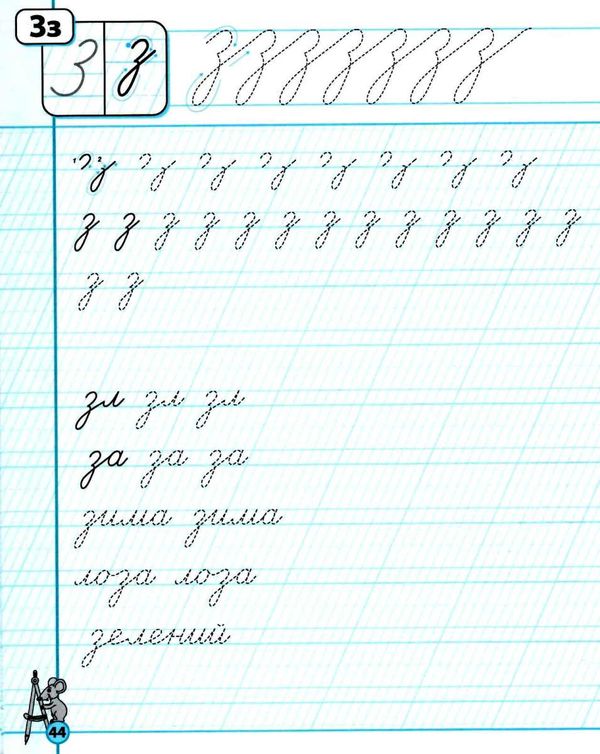 Зз
З з з з з з з з з
з з з з з з з з
з з з з з з з з з з з з з
з з
зл зл зл
за за за
зима зима
лоза лоза
зелений
44